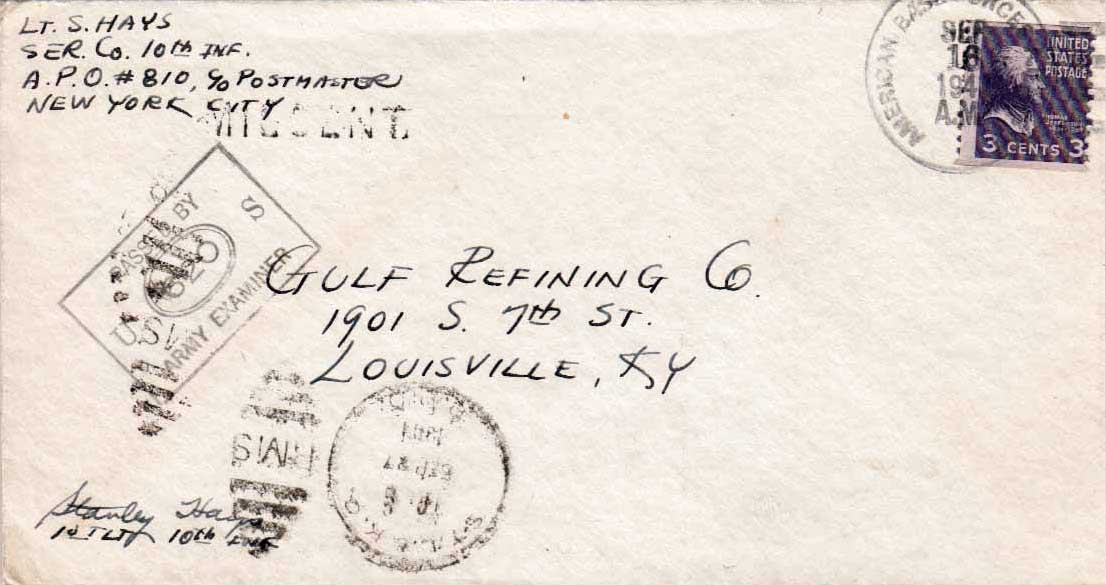 LT. S. HAYS
SER. CO. 10th INF.
A.P.O. # 810, c/o POSTMASTER
NEW YORK CITY
MISSENT
AMERICAN BASE FORCES
SEP
16
194
A.M.
UNITED
STATES
POSTAGE
3 CENTS 3
PASSED BY
U.S.
ARMY EXAMINER
GULF REFINING CO.
1901 S. 7th ST.
LOUISVILLE, KY
RMS
SEP 27
1941
Stanley Hays
1st LT 10th INF